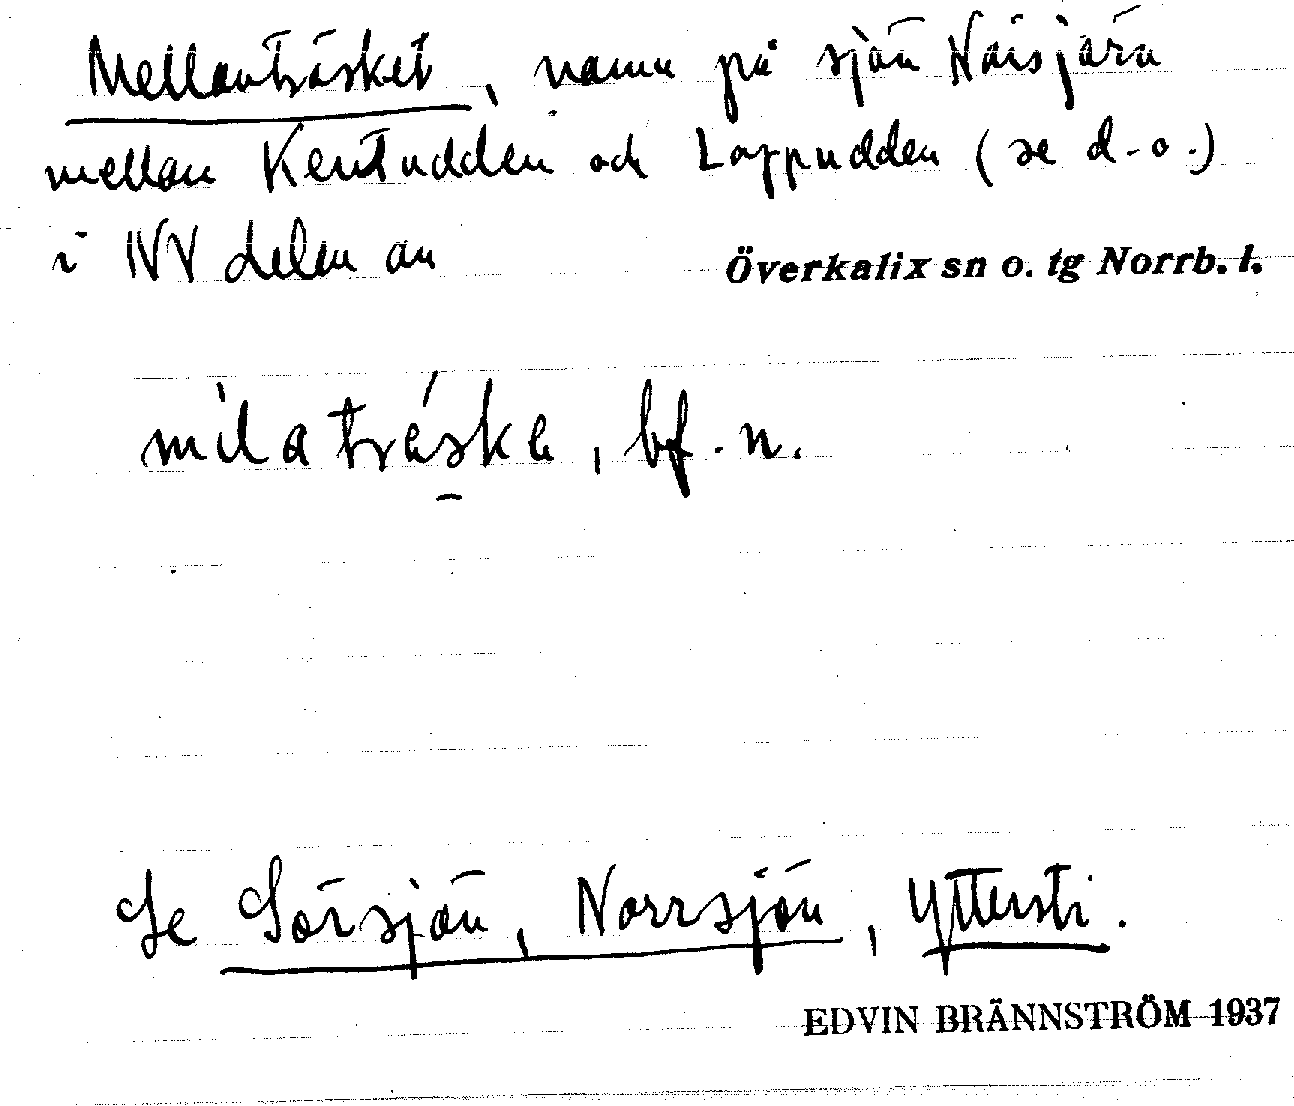 Mellanträsket, namn på sjön Näisjärv
mellan Kentudden och Lappudden (se d-o-)
i NV delen av
Överkalix sn o. tg Norrb. l.
milatráska, bf. n.
Se Sörsjön, Norrsjön, Yttersti.
EDVIN BRÄNNSTRÖM 1937